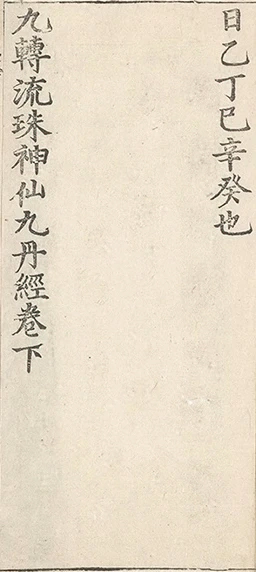 日乙丁巳辛癸也
九轉流珠神仙九丹經卷下